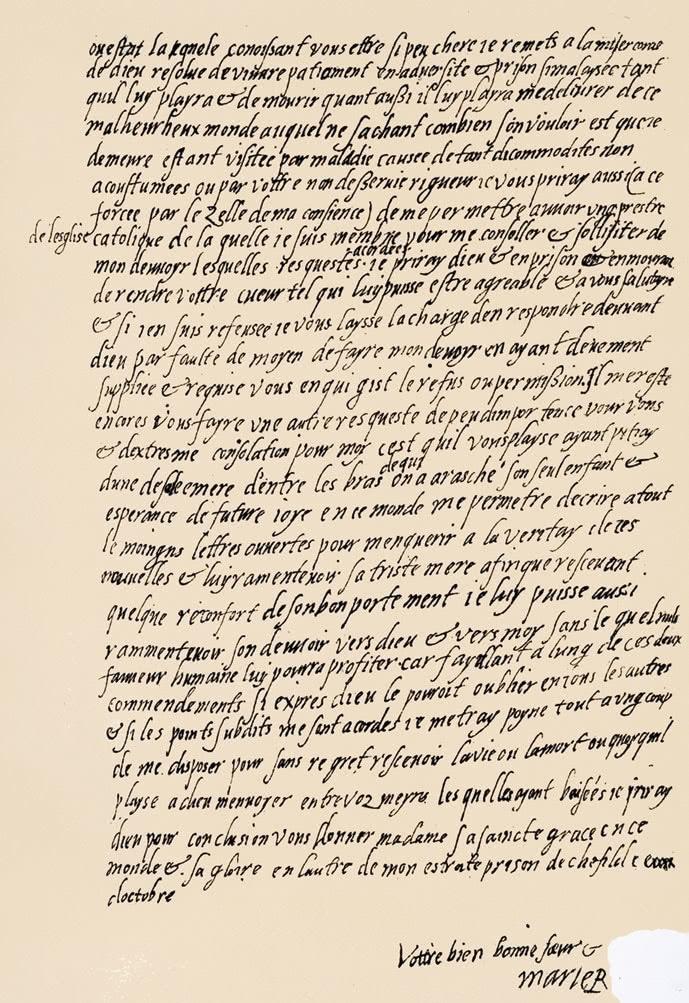 on estat laquele conoissant vous estre si peu chere ie remets a la misericorde
de dieu resolue de vivre patiament en adversite & prison si malaysee tant
quil luy playra & de mourir quant aussi il luy playra me delivrer de ce
malheurheux monde auquel ne sachant combien son vouloir est que ie
demeure estant visitee par maladie causee de tant dicommodites non
acoustumees ou par vottre non desservie rigueur ie vous priray aussi (a ce
forcee par le Zelle de ma consience) de me permettre avvoir ung prestre
de lesglise catolique de la quelle ie suis membre pour me consoller & sollisiter de
mon devvoyr lesquelles resquestes acordees ie priray dieu & en prison & en mourant
de rendre vottre cueur tel qui luy puisse estre agreable & a vous salutayre
& si ien suis refeusee ie vous laysse la charge den respondre devant
dieu par faulte de moyen de fayre mon devvoyr en ayant deuement
suppliee & requise vous en qui gist le refus ou permission. Il me reste
encores vous fayre une autre resqueste de peu dimportence pour vous
& dextresme consolation pour moy cest quil vous playse ayant pitay
dune desolee mere dentre les bras de qui on a arasche son seul enfant &
esperance de future ioye en ce monde me permetre decrire a tout
le moingns lettres ouvertes pour menquerir a la veritay de ces
nouvelles & luy ramentevoir sa triste mere afin que rescevant
quelque reconfort de son bon portement ie luy puisse aussi
rammentevoir son devvoir vers dieu & vers moy sans le quel nule
faveur humaine luy pourra profiter car fayllant a lung de ces deux
commendements si expres dieu le pouroit oublier en tous les autres
& si les points subdits me sont acordes ie metray poyne tout a ung coup
de me disposer pour sans regret rescevoir la vie ou la mort ou quoy quil
playse a dieu menvoyer entre voz meyns lesquelles ayant baisees ie priray
dieu pour conclusion vous donner madame sa saincte grace en ce
monde & sa gloire en lautre de mon estroite prison de chefild ce
doctobre
Vottre bien bonne sœur &
Marie R